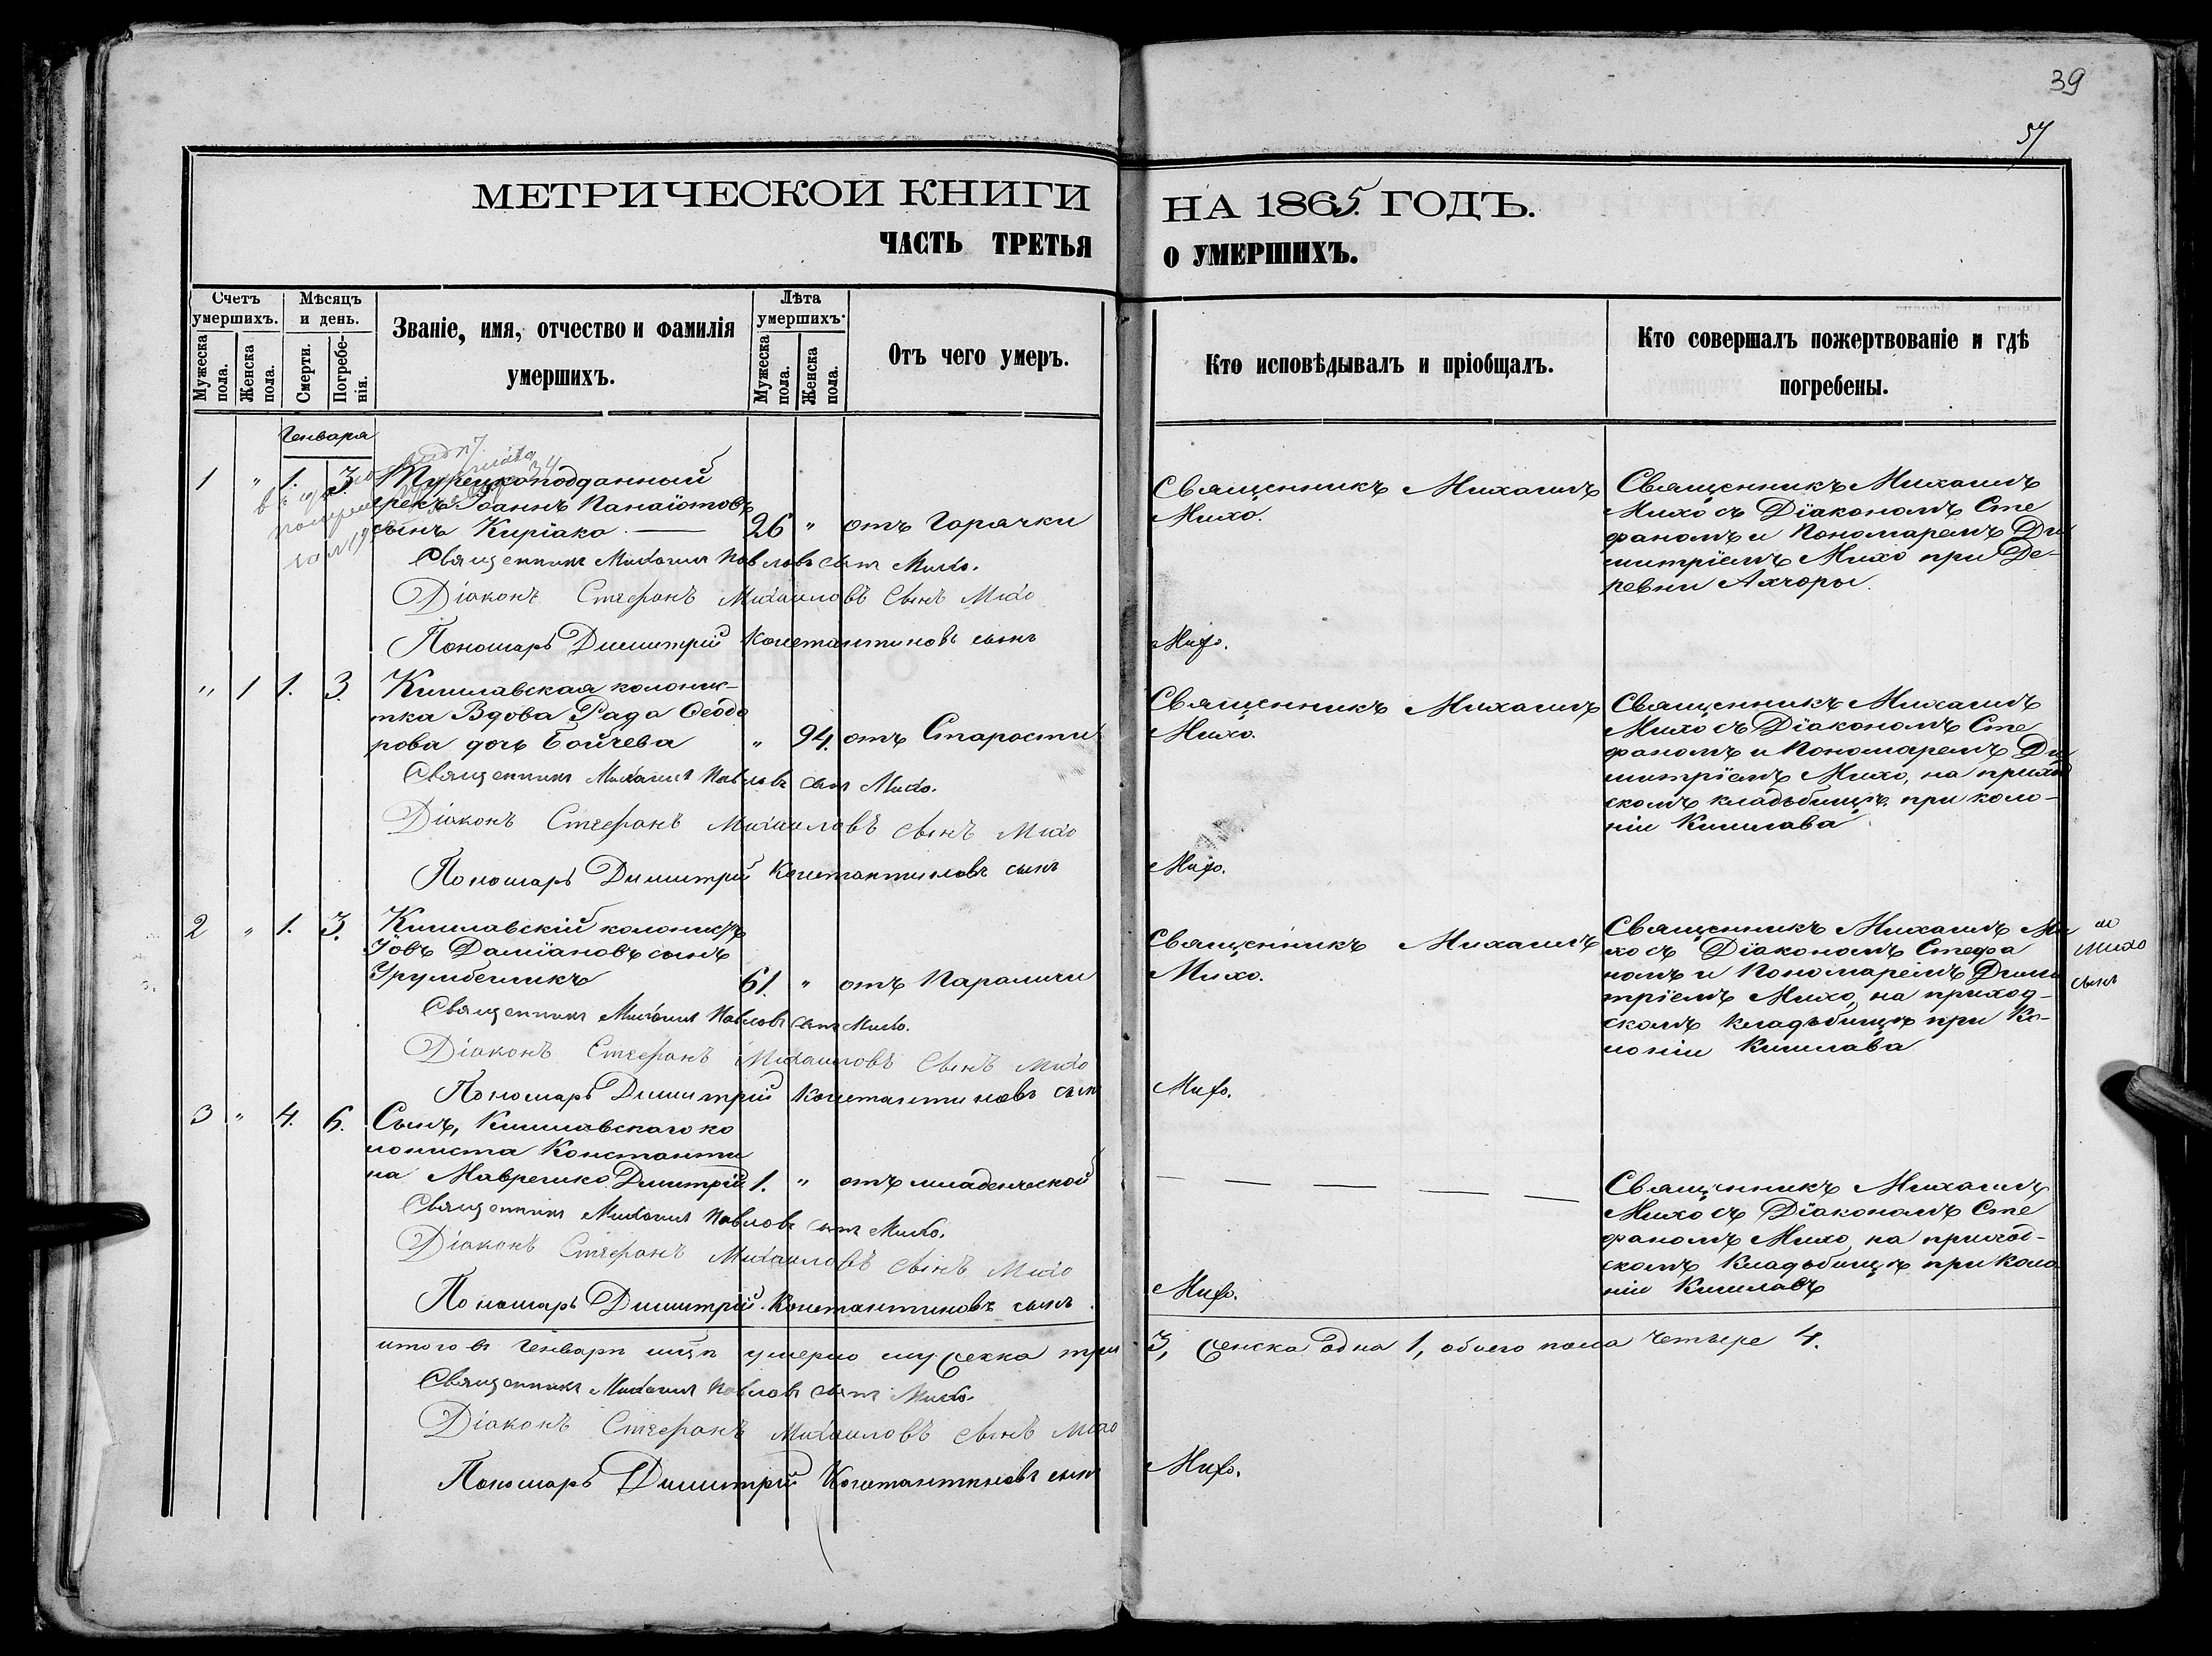 39
57
МЕТРИЧЕСКОЙ КНИГИ
НА 1865. ГОДЪ.
ЧАСТЬ ТРЕТЬЯ
О УМЕРШИХЪ.
Счетъ умершихъ.
Мужеска пола.
Женска пола.
Мѣсяцъ и день.
Смерти.
Погребенія.
Званіе, имя, отчество и фамилія
умершихъ.
Лѣта умершихъ.
Мужеска пола.
Женска пола.
Отъ чего умеръ.
Кто исповѣдывалъ и пріобщалъ.
Кто совершалъ пожертвованіе и гдѣ
погребены.
Генваря
1 " 1. 3. Турецкоподданный
грекъ Іоаннъ Панаіотовъ
сынъ Киріако — 26 " отъ Горячки
Священникъ Михаилъ
Михо.
Священникъ Михаилъ
Михо съ Діакономъ Сте
фаномъ и Пономаремъ Ди
митріемъ Михо при Де-
ревни Ахчоры.
Священникъ Михаилъ Павловъ сынъ Михо.
Діаконъ Стефанъ Михаиловъ сынъ Михо
Пономарь Димитрій Константиновъ сынъ Михо.
" 1 1. 3. Кишлавская колонис-
тка Вдова Рада Ѳеодо
рова дочь Бойчева " 94. отъ Старости
Священникъ Михаилъ
Михо.
Священникъ Михаилъ
Михо съ Діакономъ Сте
фаномъ и Пономаремъ Ди
митріемъ Михо, на приход
скомъ кладьбищѣ при коло-
ніи Кишлава
Священникъ Михаилъ Павловъ сынъ Михо.
Діаконъ Стефанъ Михаиловъ сынъ Михо
Пономарь Димитрій Константиновъ сынъ Михо.
2 " 1. 3. Кишлавскій колонистъ
Іовъ Даміановъ сынъ
61. " отъ Параличи
Священникъ Михаилъ
Михо.
Священникъ Михаилъ Ми
хо съ Діакономъ Стефа
номъ и Пономаремъ Дими
тріемъ Михо, на приход-
скомъ кладьбищѣ при Ко-
лоніи Кишлава
Михо
сынъ
Священникъ Михаилъ Павловъ сынъ Михо.
Діаконъ Стефанъ Михаиловъ сынъ Михо
Пономарь Димитрій Константиновъ сынъ Михо.
3 " 4. 6. Сынъ, Кишлавскаго ко
лониста Константи
на Маврешко Димитрій 1. " отъ младенческой
— — — — —
Священникъ Михаилъ
Михо съ Діакономъ Сте
фаномъ Михо на приход-
скомъ Кладьбищѣ при Коло
ніи Кишлавъ
Священникъ Михаилъ Павловъ сынъ Михо.
Діаконъ Стефанъ Михаиловъ сынъ Михо
Пономарь Димитрій Константиновъ сынъ Михо.
итого въ Генварѣ умерло мужеска три 3, женска одна 1, обоего пола четыре 4.
Священникъ Михаилъ Павловъ сынъ Михо.
Діаконъ Стефанъ Михаиловъ сынъ Михо
Пономарь Димитрій Константиновъ сынъ Михо.